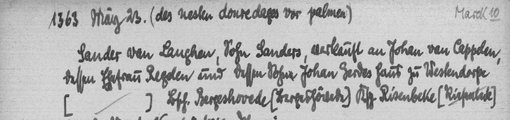 1363 März 23. (des nesten donredages vor palmen)
Sander van Langhen, Sohn Sanders, verkauft an Johan van Cappelen,
dessen Ehefrau Regelen und dessen Sohne Johan Gerdes Haus zu Westendorpe
[ ] Ksp. Bergeshovede [Bergeshövede] Ksp. Risenbeke [Riesenbeck]